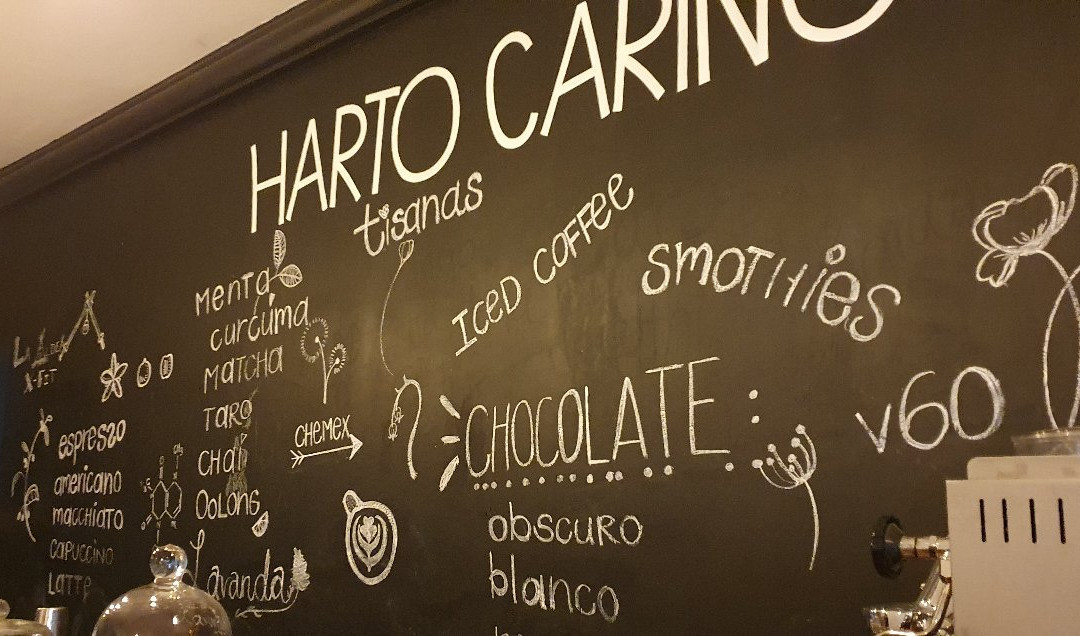 HARTO CARIÑO
tisanas
ICED COFFEE
SMOTHIES
MENTA
CURCUMA
MATCHA
TARO
CHAI
OOLONG
Lavanda
espresso
americano
macchiato
CAPUCCINO
LATTE
CHEMEX
CHOCOLATE :
OBSCURO
blanco
V60